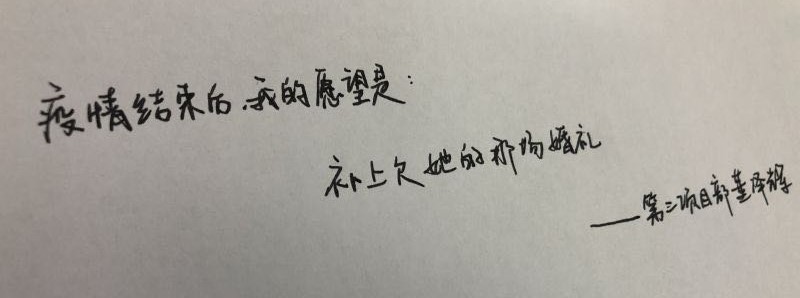 疫情结束后,我的愿望是:
补上欠她的那场婚礼
——第三项目部董泽辉